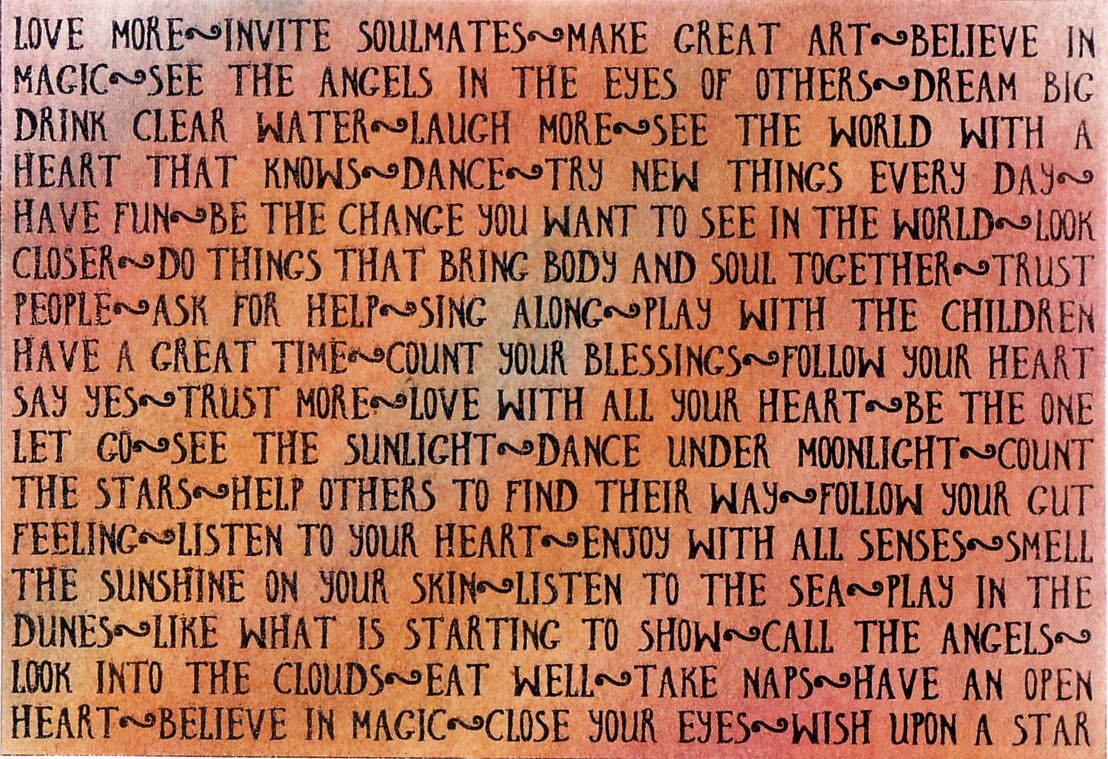 LOVE MORE~INVITE SOULMATES~MAKE GREAT ART~BELIEVE IN
MAGIC~SEE THE ANGELS IN THE EYES OF OTHERS~DREAM BIG
DRINK CLEAR WATER~LAUGH MORE~SEE THE WORLD WITH A
HEART THAT KNOWS~DANCE~TRY NEW THINGS EVERY DAY~
HAVE FUN~BE THE CHANGE YOU WANT TO SEE IN THE WORLD~LOOK
CLOSER~DO THINGS THAT BRING BODY AND SOUL TOGETHER~TRUST
PEOPLE~ASK FOR HELP~SING ALONG~PLAY WITH THE CHILDREN
HAVE A GREAT TIME~COUNT YOUR BLESSINGS~FOLLOW YOUR HEART
SAY YES~TRUST MORE~LOVE WITH ALL YOUR HEART~BE THE ONE
LET GO~SEE THE SUNLIGHT~DANCE UNDER MOONLIGHT~COUNT
THE STARS~HELP OTHERS TO FIND THEIR WAY~FOLLOW YOUR GUT
FEELING~LISTEN TO YOUR HEART~ENJOY WITH ALL SENSES~SMELL
THE SUNSHINE ON YOUR SKIN~LISTEN TO THE SEA~PLAY IN THE
DUNES~LIKE WHAT IS STARTING TO SHOW~CALL THE ANGELS~
LOOK INTO THE CLOUDS~EAT WELL~TAKE NAPS~HAVE AN OPEN
HEART~BELIEVE IN MAGIC~CLOSE YOUR EYES~WISH UPON A STAR